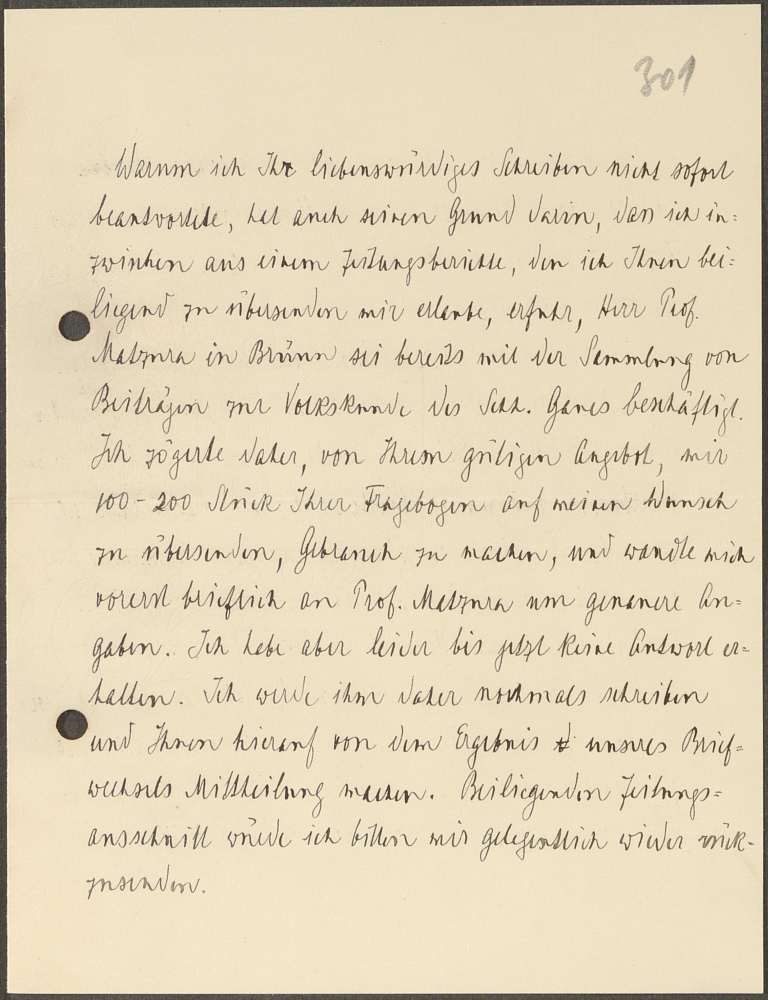 301
Warum ich Ihr liebenswürdiges Schreiben nicht sofort
beantwortete, hat auch seinen Grund darin, dass ich in=
zwischen aus einem Zeitungsberichte, den ich Ihnen bei=
liegend zu übersenden mir erlaube, erfuhr, Herr Prof.
Matzura in Brünn sei bereits mit der Sammlung von
Beiträgen zur Volkskunde des Schh. Gaues beschäftigt.
Ich zögerte daher, von Ihrem gütigen Angebot, mir
100-200 Stück Ihrer Fragebogen auf meinen Wunsch
zu übersenden, Gebrauch zu machen, und wandte mich
vorerst brieflich an Prof. Matzura um genauere An=
gaben. Ich habe aber leider bis jetzt keine Antwort er=
halten. Ich werde ihm daher nochmals schreiben
und Ihnen hierauf von dem Ergebnis unseres Brief=
wechsels Mittheilung machen. Beiliegenden Zeitungs=
ausschnitt würde ich bitten mir gelegentlich wieder rück-
zusenden.